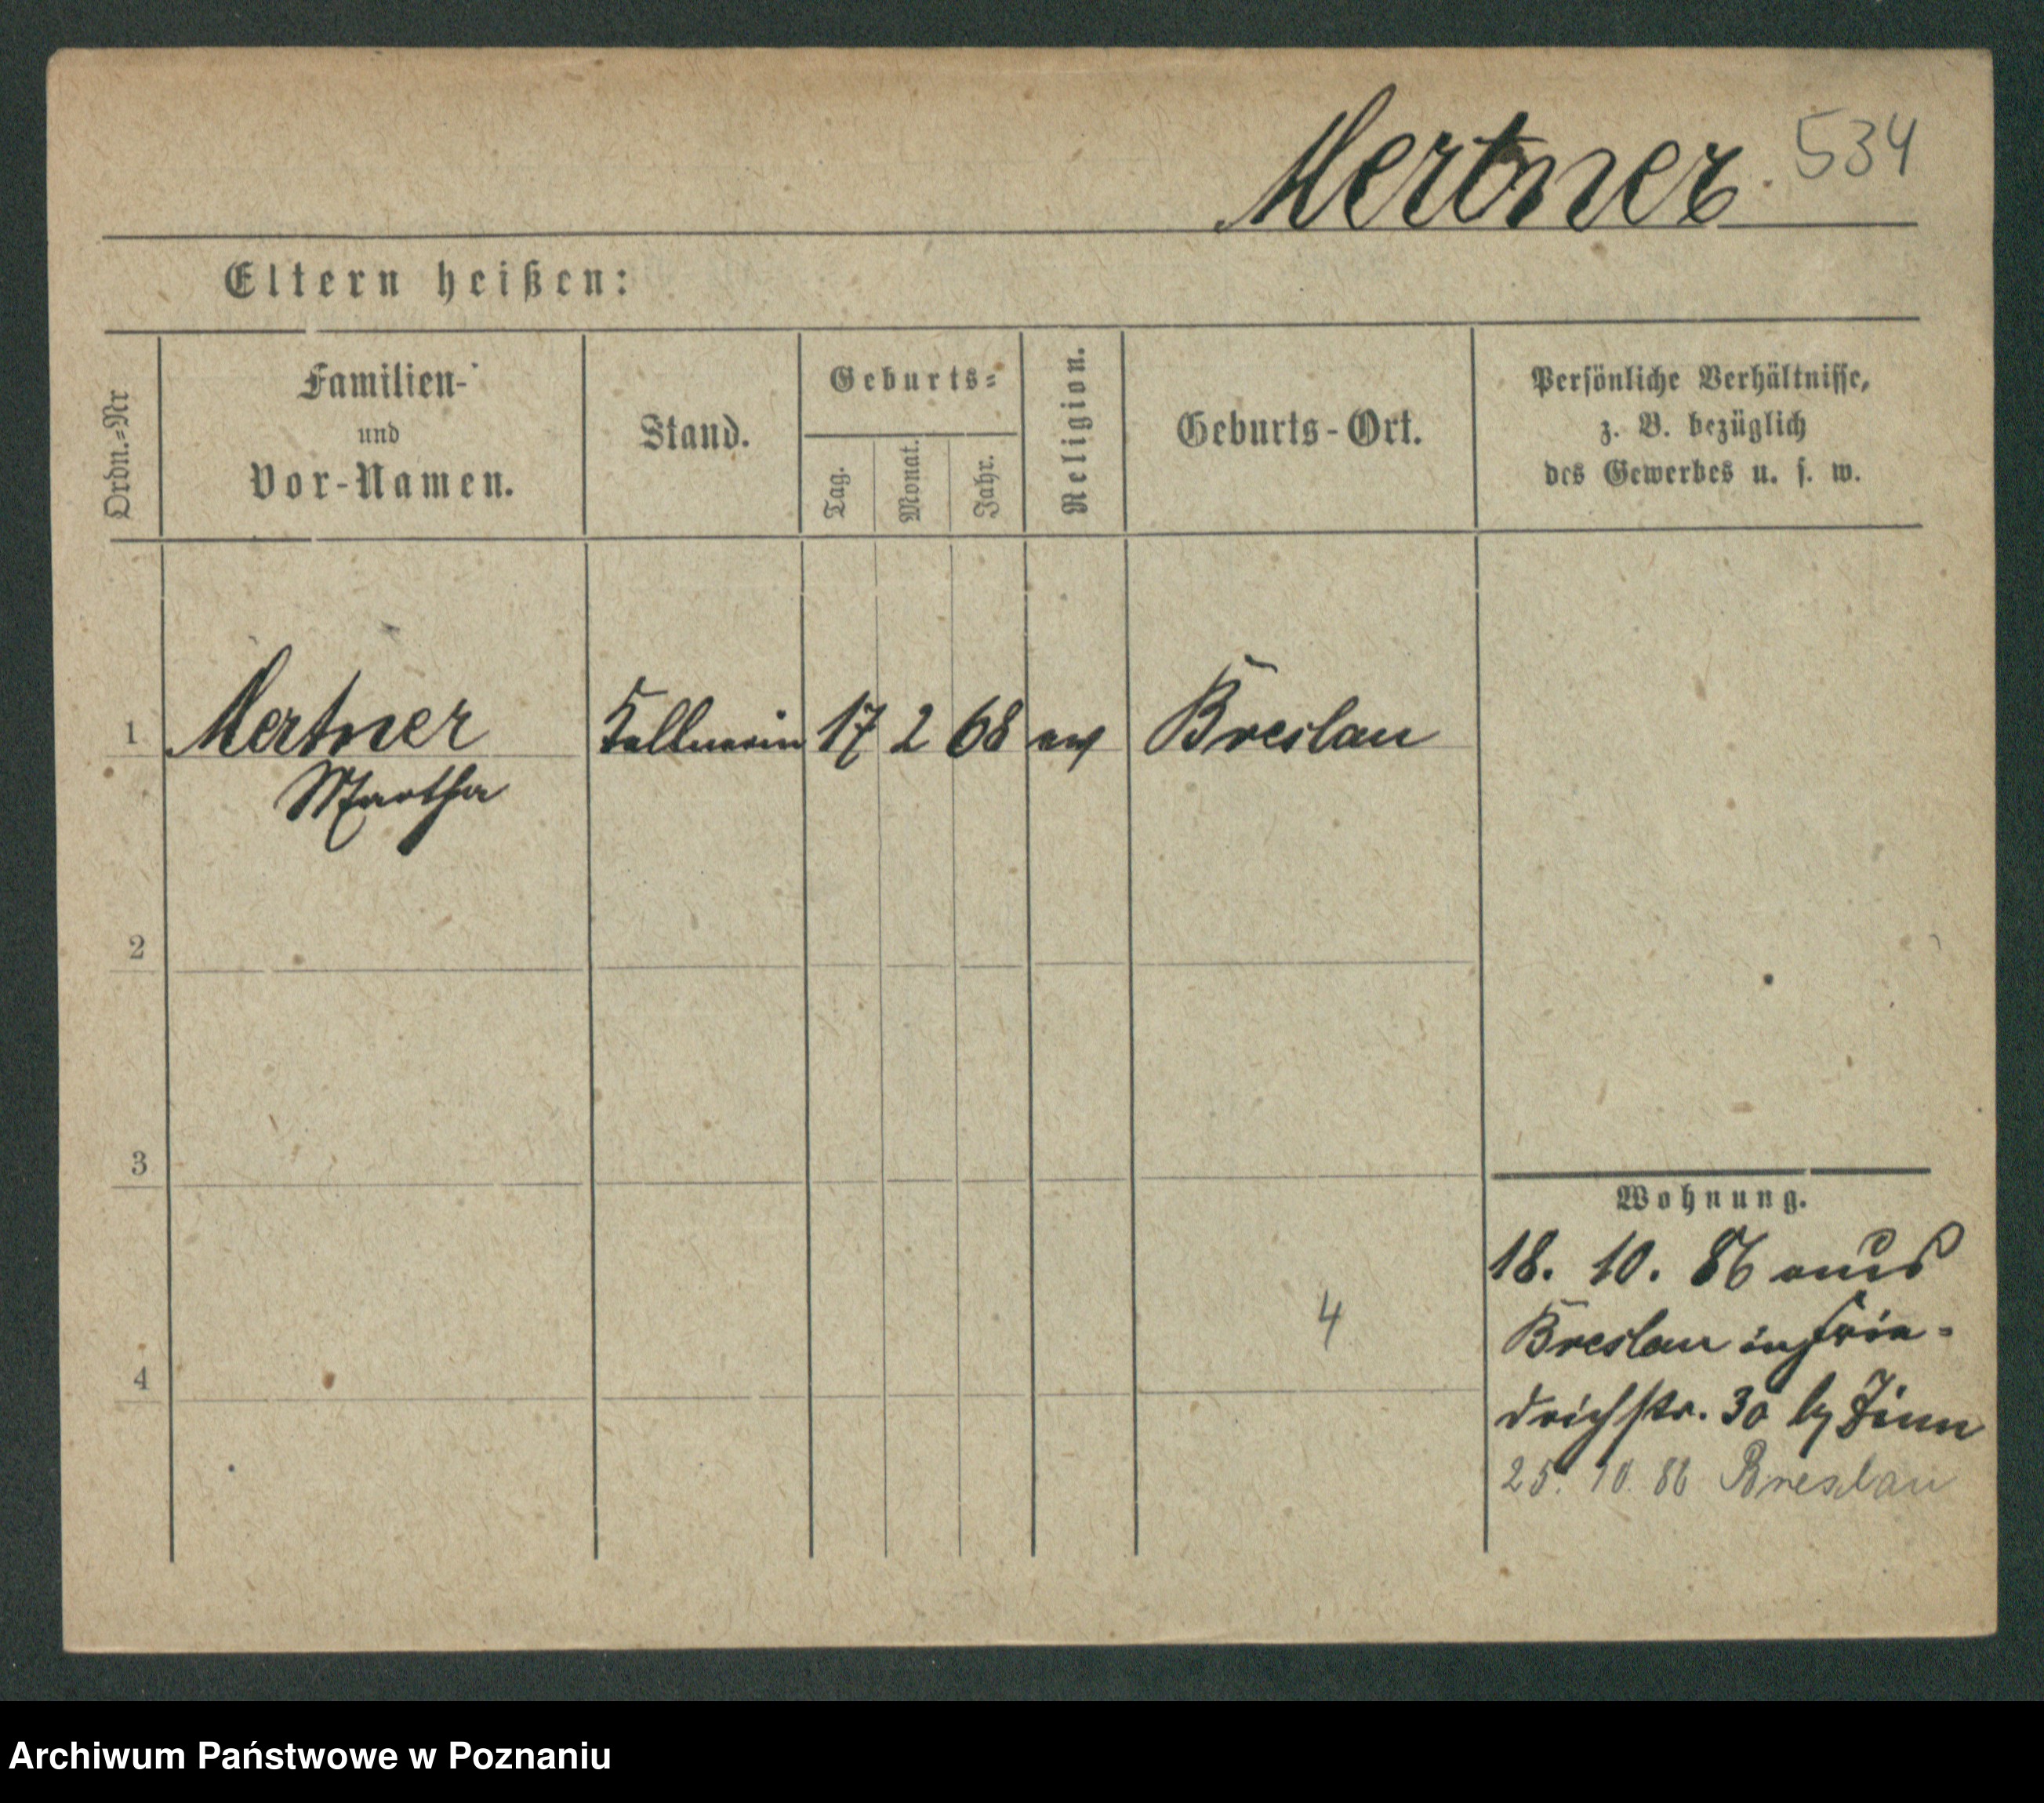 Mertner. 534
Eltern heißen:
Ordn.=Nr
Familien-
und
Vor-Namen.
Stand.
Geburts=
Tag.
Monat.
Jahr.
Religion.
Geburts-Ort.
Persönliche Verhältnisse,
z. B. bezüglich
des Gewerbes u. s. w.
1 Mertner Kellnerin 17 2 68 ev Breslau
Martha
2
3
Wohnung.
18. 10. 86 aus
Breslau in Frie-
4
4
drichstr. 30 by Zinn
25. 10. 86 Breslau
Archiwum Państwowe w Poznaniu